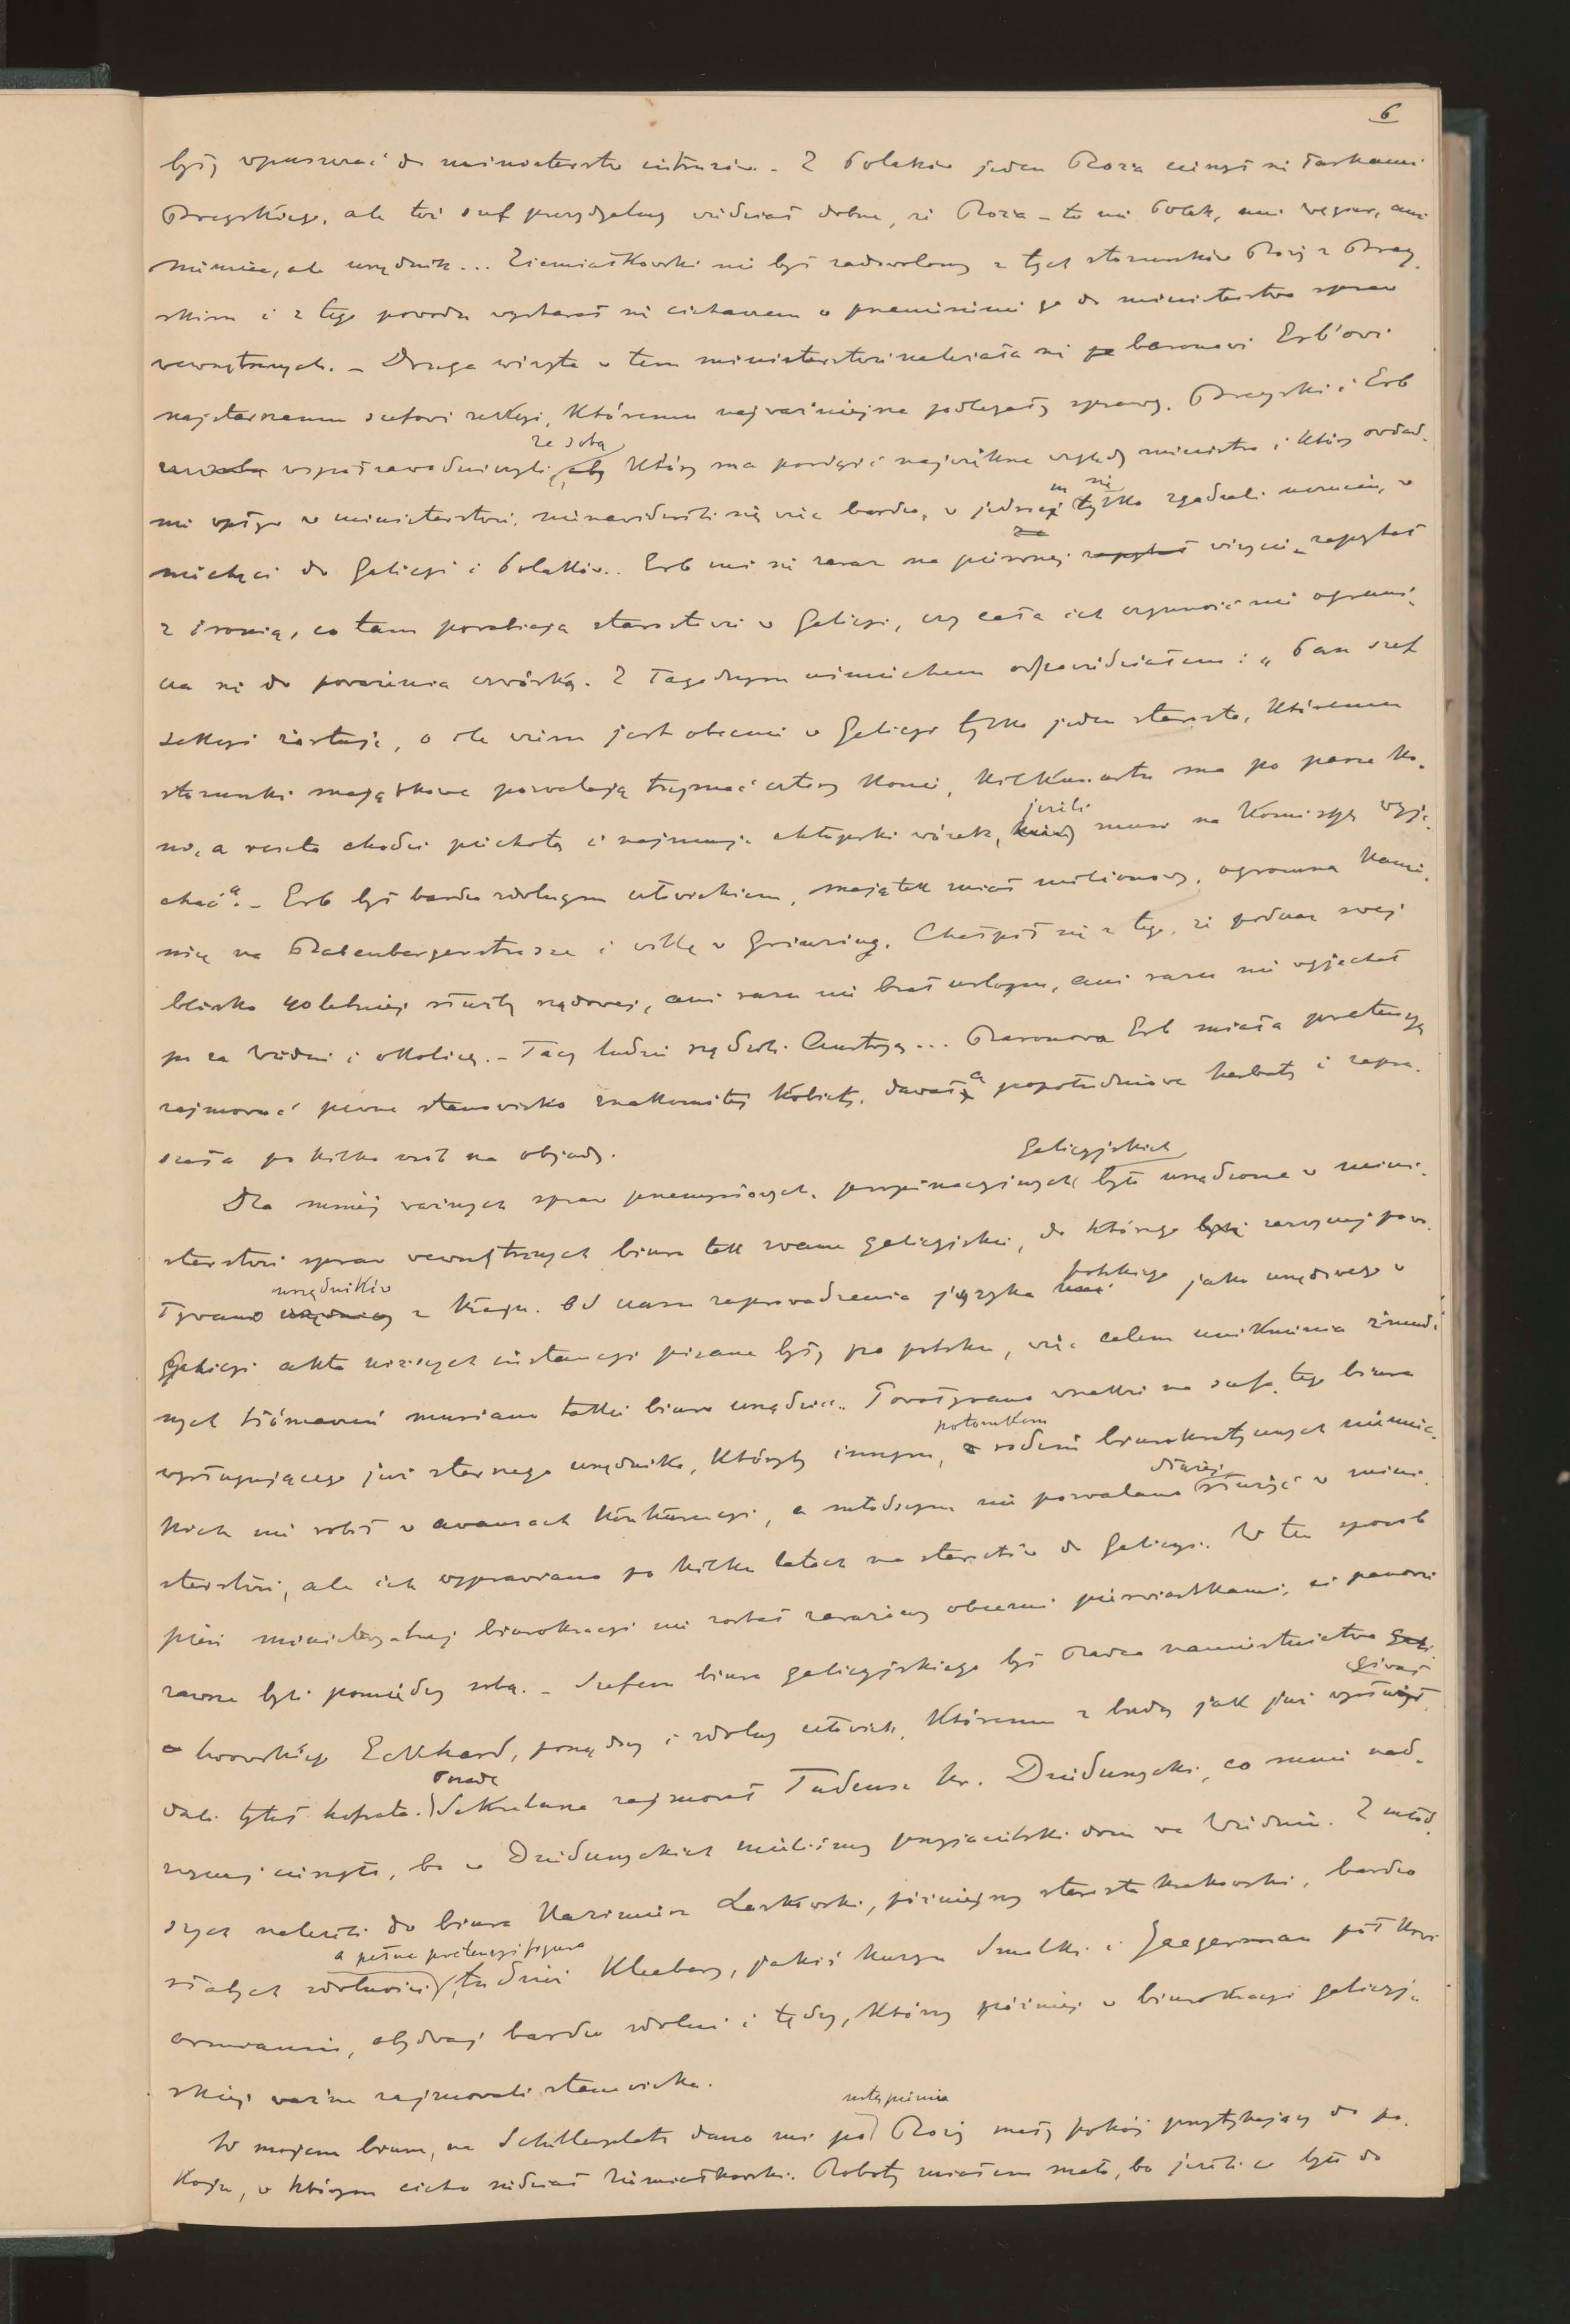 6
być wpuszczać do ministerstw intruzów. – Z Polaków jeden Roża cieszył się łaskami
Breyskiego, ale tei szef prezydialny widział dobrze, że Roża – to nie Polak, ani węgier, ani
niemiec, ale urzędnik... Ziemiałkowski nie był zadowolony z tych stosunków Roży z Brey-
skim i z tego powodu wystarał się cichaczem o przeniesienie go do ministerstwa spraw
wewnętrznych. – Druga wizyta w tem ministerstwie należała się baronowi Erb'owi
najstarszemu szefowi sekcyi, któremu najważniejsze podlegały sprawy. Breyski i Erb
współzawodniczyli ze sobą, który ma posiąść największe względy ministra i który owład-
nie wpływ w ministerstwie, nienawidzili się więc bardzo, w jednem się tylko zgadzali uczuciu, w
niechęci do Galicyi i Polaków. Erb mi się zaraz na pierwszej wizycie zapytał
z ironią, co tam porabiają starostwie w Galicyi, czy cała ich czynność nie ograni-
cza się do powożenia czwórką. Z łagodnym uśmiechem odpowiedziałem: „Pan szef
sekcyi żartuje, o ile wiem jest obecnie w Galicyi tylko jeden starosta, któremu
stosunki majątkowe pozwalają trzymać cztery konie, kilkunastu ma po parze ko-
ni, a reszta chodzi piechotą i najmuje chłopski wózek, jeżeli musi na komisyę wyje-
chać“. – Erb był bardzo zdolnym człowiekiem, majątek miał milionowy, ogromną kamie-
nicę na Babenbergerstrasse i willę w Grinzing. Chełpił się z tego, że podczas swej
blisko 40 letniej służby rządowej, ani razu nie brał urlopu, ani razu nie wyjechał
po za Wiedeń i okolicę. – Tacy ludzie rządzili Austryą... Baronowa Erb miała pretensyę
zajmować pewne stanowisko znakomitej kobiety, dawała popołudniowe herbaty i zapra-
szała po kilka osób na objady.
Dla mniej ważnych spraw przemysłowych, propinacyjnych galicyjskich było urządzone w mini-
sterstwie spraw wewnętrznych biuro tak zwane galicyjskie, do którego zazwyczaj powo-
ływano urzędników z kraju. Od czasu zaprowadzenia języka polskiego jako urzędowego w
Galicyi akta niższych instancyi pisane były po polsku, więc celem uniknienia żmud-
nych tłómaczeń musiano takie biuro urządzić. Powoływano wszakże na szefa tego biura
wysługującego już starszego urzędnika, któryby innym, potomkom rodzin biurokratycznych niemiec-
kich nie robił w awansach konkurencyi, a młodszym nie pozwalano dłużej służyć w mini-
sterstwie, ale ich wyprawiano po kilku latach na starostów do Galicyi. W ten sposób
pień ministeryalnej biurokracyi nie został zarażony obcemi pierwiastkami, ci panowie
zawsze byli pomiędzy sobą. – Szefem biura galicyjskiego był Radca namiestnictwa
lwowskiego Eckhard, porządny i zdolny człowiek, któremu z biedy jak już wysługiwał
dali tytuł hofrata. Posadę Sekretarza zajmował Tadeusz hr. Dzieduszycki, co mnie nad-
zwyczaj cieszyło, bo w Dzieduszyckich mieliśmy przyjacielski dom we Wiedniu. Z młod-
szych należeli do biura Kazimierz Laskowski, późniejszy starosta krakowski, bardzo
słabych zdolności a pełna pretensyi figura, tudzież Kleeberg, jakiś kuzyn Smolki i Jaegerman pół krwi
ormianin, obydwaj bardzo zdolni i tędzy, którzy później w biurokracyi galicyj-
skiej ważne zajmowali stanowiska.
W mojem biurze, na Schillerplatz dano mi po ustąpieniu Roży mały pokój przytykający do po-
koju, w którym cicho siedział Ziemiałkowski. Roboty miałem mało, bo jeżeli co było do